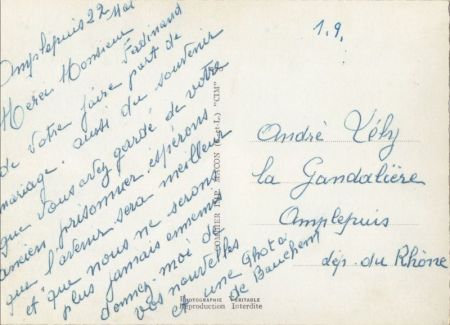 Amplepuis 22 Mai
Merci Monsieur Ferdinand
de votre faire part de
mariage. aussi du souvenir
que vous avez gardé de votre
ancien prisonnier espérons
que l'avenir sera meilleur
et que nous ne serons
plus jamais ennemis
donnez moi de
vos nouvelles
et une Photo
de Bauchem
COMBIER IMP. MACON (S.-et-L.) "CIM"
PHOTOGRAPHIE VERITABLE
Reproduction Interdite
1.9.
André Vély
la Gandalière
Amplepuis
dép. du Rhône